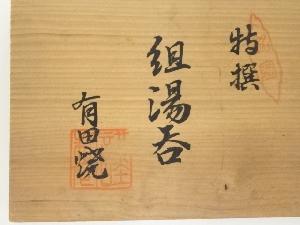 特撰
組湯呑
有田焼